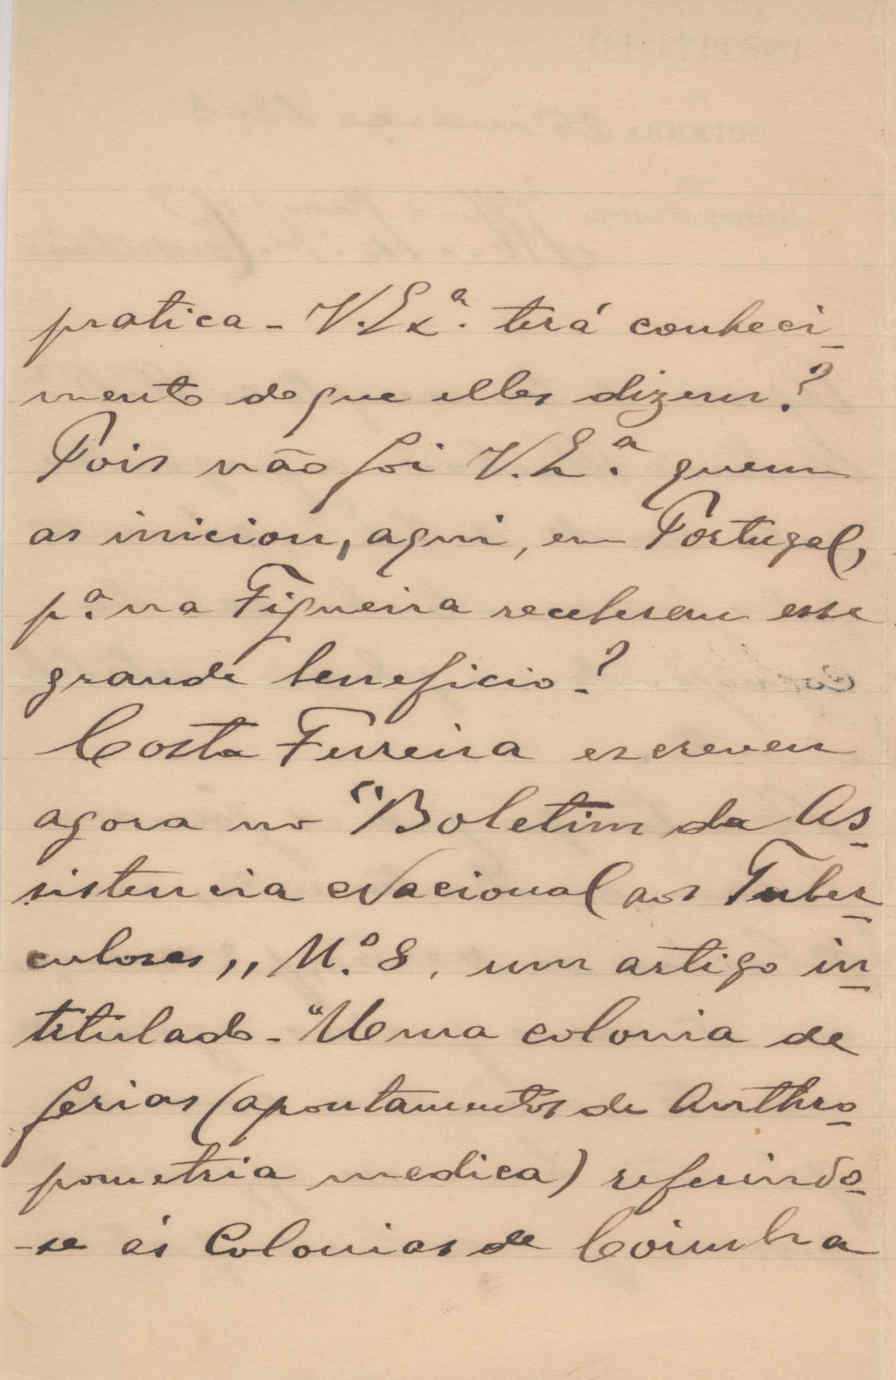 pratica - V. Exª. terá conheci-
mento do que elles dizem?
Pois não foi V. Eª. quem
as iniciou, aqui, em Portugal,
pª. na Figueira receberem esse
grande beneficio?
Costa Ferreira escreveu
agora no "Boletim da As-
sistencia Nacional aos Tuber-
culosos,, N.º 8, um artigo in-
titulado - "Uma colonia de
ferias (apontamentos de Anthro-
pometria medica) referindo-
-se ás Colonias de Coimbra